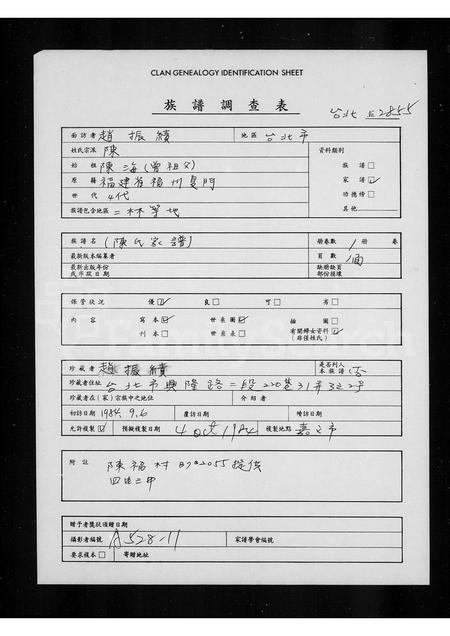 CLAN GENEALOGY IDENTIFICATION SHEET
族譜調查表
台北 E2855
面訪者 趙振績 地區 台北市
姓氏宗派 陳 資料類別
始祖 陳海(曾祖父) 族譜□
原籍 福建省福州廈門 家譜☑
世代 4代 功德榜□
族譜包含地區 二林等地 其他
族譜名 (陳氏家譜) 冊卷數 1 冊 卷
最新版本編纂者 頁數 1面
最新出版年份或序跋日期 缺冊缺頁部份損壞
保管狀況 優☑ 良□ 可□ 布□
內容 寫本☑ 世系圖☑ 插圖□
刊本□ 世系表□ 有關婦女資料☑(非僅姓氏)
珍藏者 趙振績 是否列入本族譜 (否
珍藏者住址 台北市興隆路二段220巷31弄3之2号
珍藏者在(家)宗族中之地位 介紹者
初訪日期 1984.9.6 覆訪日期 續訪日期
允許複製☑ 預擬複製日期 4 Oct 1984 複製地點 嘉之市
附註 陳福村 提供
贈予者獎狀頒贈日期
攝影者編號 A528-11 家譜學會編號
要求複本□ 寄贈地址
FamilySearch